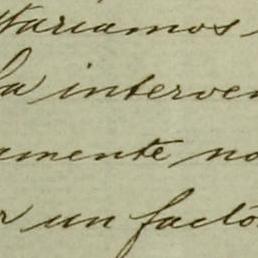 tariamos
la interven
amente no
r un factó